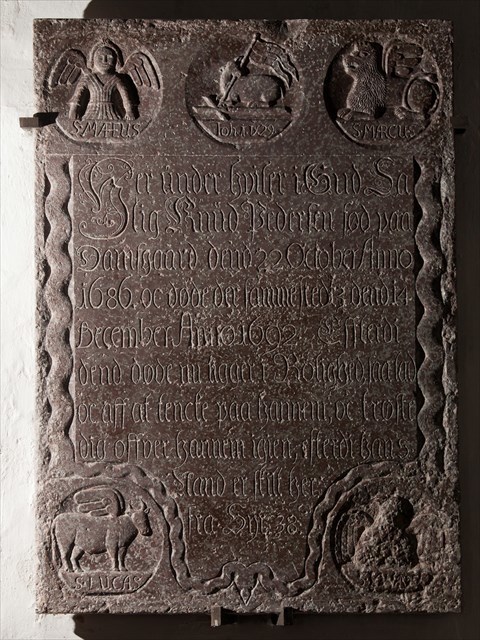 S. MATUS
Joh. 1. V. 29.
S. MARCUS
Her under hviler i Gud Sa
lig Knud Pedersen fød paa
Damsgaard dend 22 October Anno
1686. oc døde der sammested dend 14
December Anno 1692. Effterdi
dend døde nu ligger i Rolighed, saa lad
oc aff at tencke paa hannem, oc trøste
dig offver hannem igien, efterdi hans
Aand er skilt her
fra. Syr. 38.
S. LUCAS